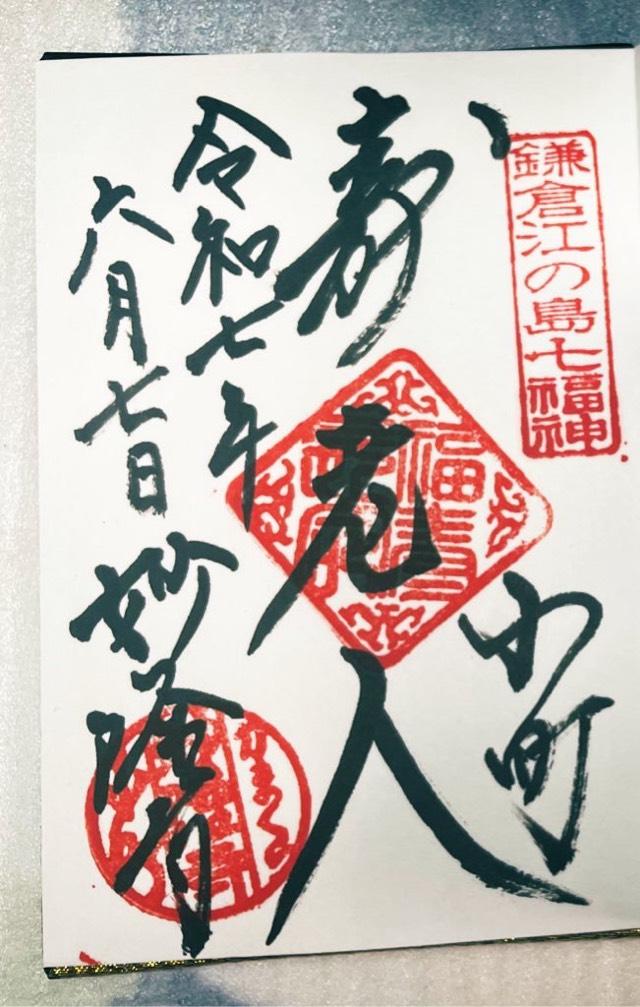 鎌倉江の島七福神
小町
寿老人
令和七年
六月七日
妙隆寺